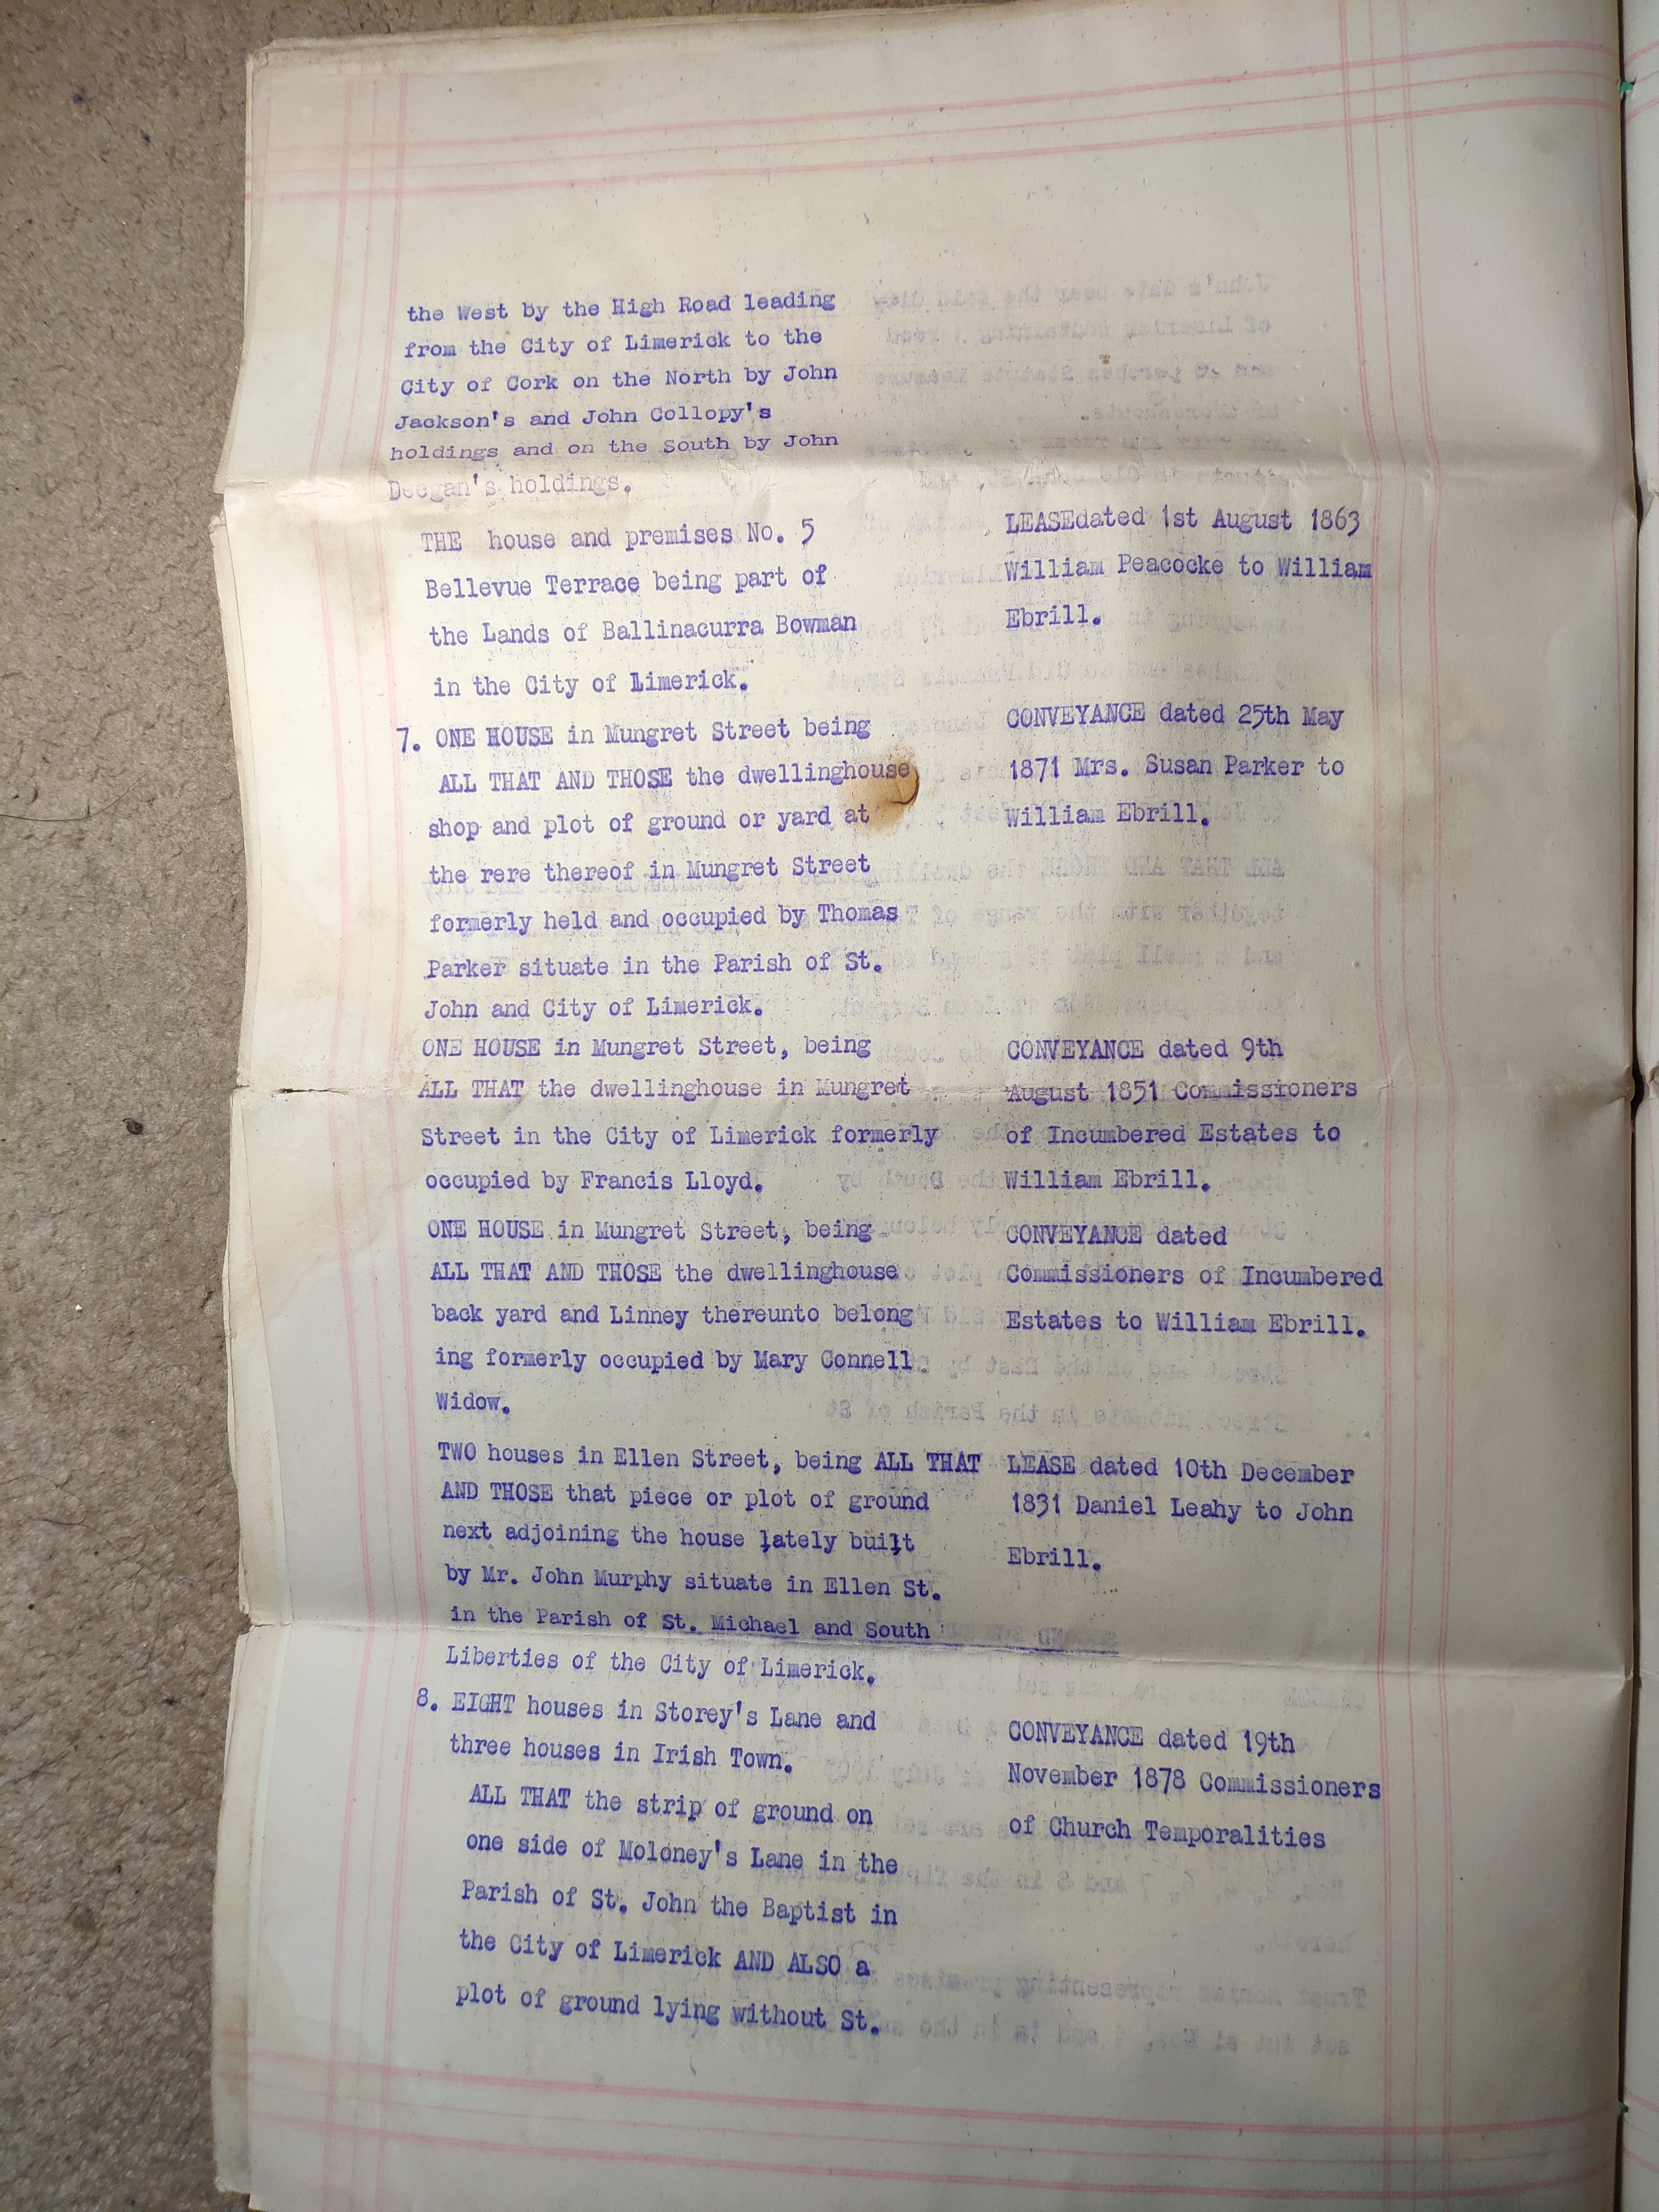 the West by the High Road leading
from the City of Limerick to the
City of Cork on the North by John
Jackson's and John Collopy's
holdings and on the South by John
Deegan's holdings.
THE house and premises No. 5
Bellevue Terrace being part of
the Lands of Ballinacurra Bowman
in the City of Limerick.
LEASEdated 1st August 1863
William Peacocke to William
Ebrill.
7. ONE HOUSE in Mungret Street being
ALL THAT AND THOSE the dwellinghouse
shop and plot of ground or yard at
the rere thereof in Mungret Street
formerly held and occupied by Thomas
Parker situate in the Parish of St.
John and City of Limerick.
CONVEYANCE dated 25th May
1871 Mrs. Susan Parker to
William Ebrill.
ONE HOUSE in Mungret Street, being
ALL THAT the dwellinghouse in Mungret
Street in the City of Limerick formerly
occupied by Francis Lloyd.
CONVEYANCE dated 9th
August 1851 Commissioners
of Incumbered Estates to
William Ebrill.
ONE HOUSE in Mungret Street, being
ALL THAT AND THOSE the dwellinghouse
back yard and Linney thereunto belong
ing formerly occupied by Mary Connell
Widow.
CONVEYANCE dated
Commissioners of Incumbered
Estates to William Ebrill.
TWO houses in Ellen Street, being ALL THAT
AND THOSE that piece or plot of ground
next adjoining the house lately built
by Mr. John Murphy situate in Ellen St.
in the Parish of St. Michael and South
Liberties of the City of Limerick.
LEASE dated 10th December
1831 Daniel Leahy to John
Ebrill.
8. EIGHT houses in Storey's Lane and
three houses in Irish Town.
ALL THAT the strip of ground on
one side of Moloney's Lane in the
Parish of St. John the Baptist in
the City of Limerick AND ALSO a
plot of ground lying without St.
CONVEYANCE dated 19th
November 1878 Commissioners
of Church Temporalities